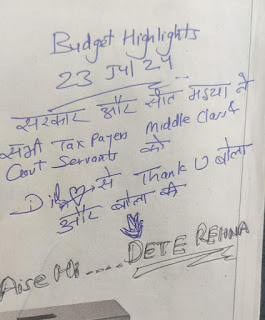 Budget Highlights
23 Jul 24
सरकार और सीता मइया ने
सभी Tax Payers Middle Class &
Govt Servant को
Dil से Thank U बोला
और बोला की
Aise Hi .... DETE REHNA